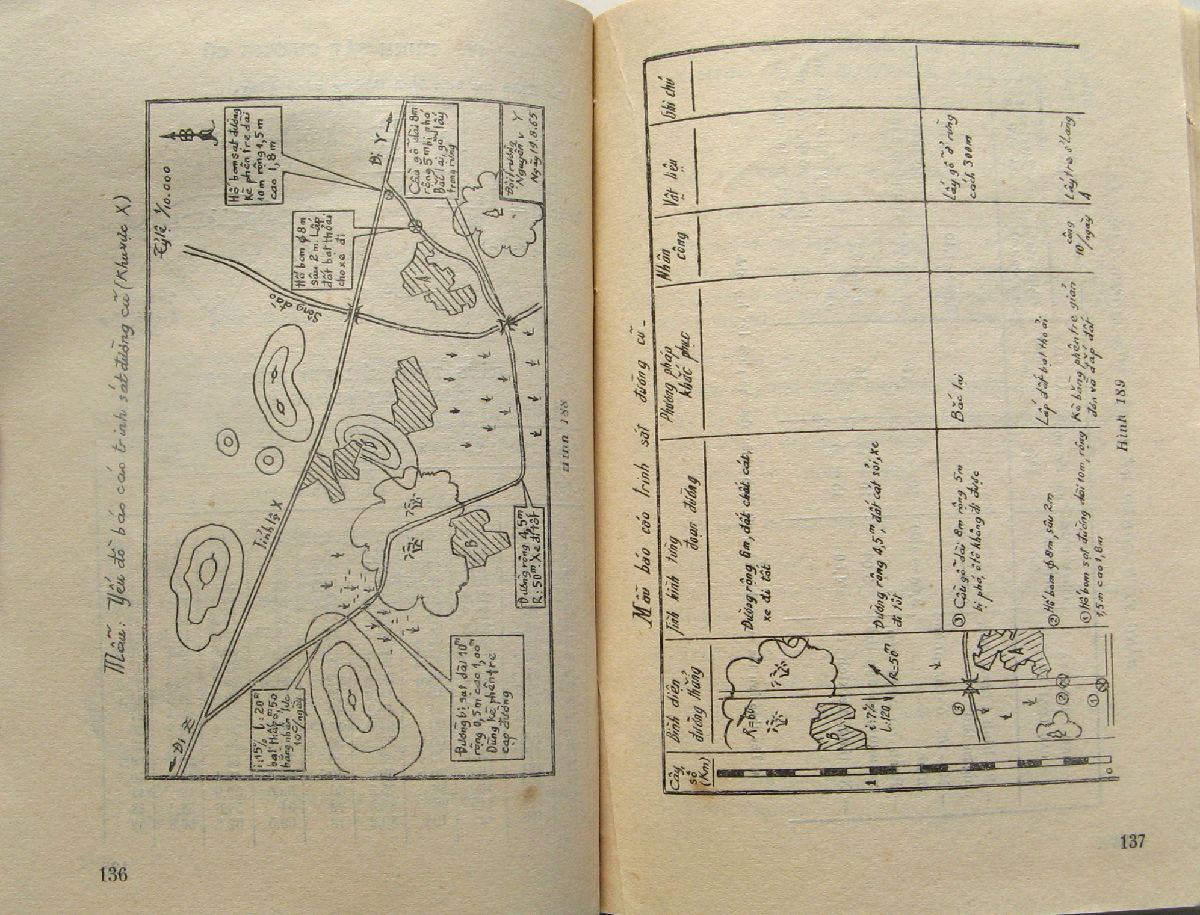 Mẫu: Yếu đồ báo cáo trinh sát đường cũ (Khu vực X)
Tỷ lệ 1/10.000
Hố bom sạt đường
Kè phên tre dài
10m rộng 1,5m
cao 1,8m
Đi Y
Cầu gỗ dài 8m
rộng 5m bị phá
Bắc lại, gỗ lấy
trong rừng
Đội trưởng
Nguyễn v Y
Ngày 19.8.65
Hố bom φ 8m
sâu 2m. Lấp
đất bạt thoải
cho xe đi
A
Sông đào
Tỉnh lộ X
B
Đường rộng 4,5m
R:50m Xe đi tốt
Đường bị sạt dài 10m
rộng 0,5m cao 1,00m
Dùng kè phên tre
cạp đường
i:15% l:20m
bạt thấp 0m50
bằng nhân lực
10c/ngày
Đi Z
Hình 188
136
Mẫu báo cáo trinh sát đường cũ
Cây số (Km)
Bình diện đường thẳng
Tình hình từng đoạn đường
Phương pháp khắc phục
Nhân công
Vật liệu
Ghi chú
1
0
R=60
B
i:7%
l:120
R=50m
A
③
②
①
Đường rộng 6m, đất chất cát,
xe đi tốt
Đường rộng 4,5m, đất cát sỏi, xe
đi tốt
③ Cầu gỗ dài 8m rộng 5m
bị phá, ô tô không đi được
Bắc lại
Lấy gỗ ở rừng
cách 300m
② Hố bom φ 8m, sâu 2m
Lấp đất bạt thoải
① Hố bom sạt đường dài 10m, rộng
1,5m cao 1,8m
Kè bằng phên tre giản
đơn và đắp đất
công
10/ngày
Lấy tre ở làng
A
Hình 189
137